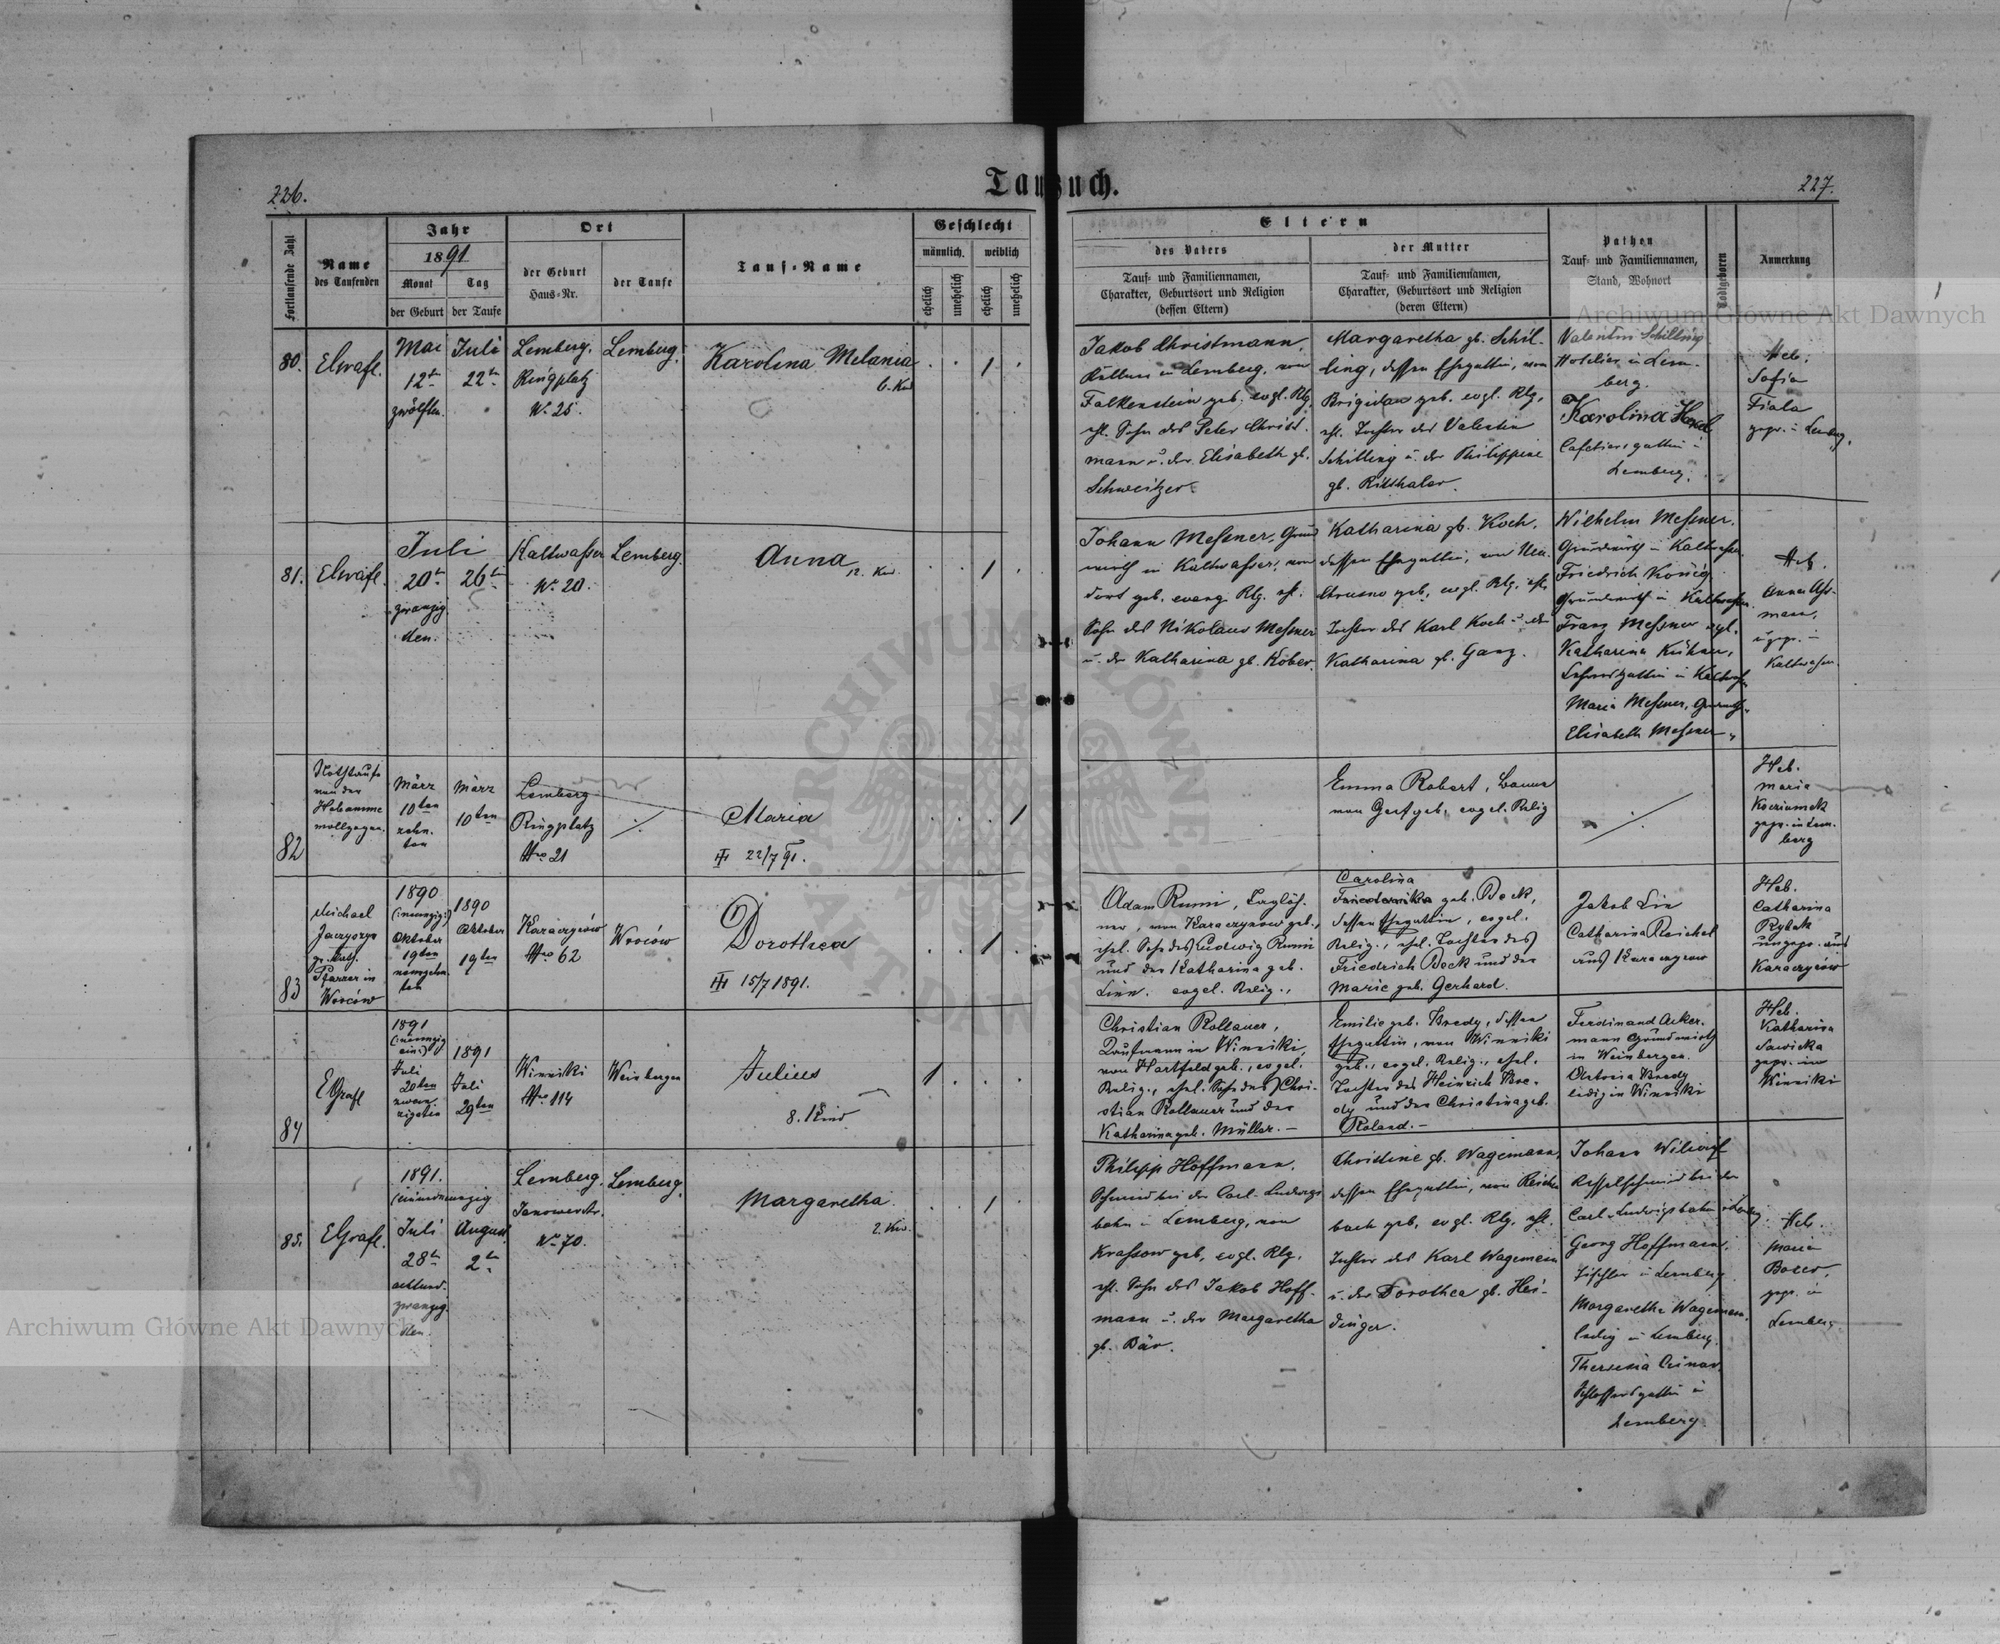 226.
Taufbuch.
227.
Fortlaufende Zahl
Name
des Taufenden
Jahr
1891
Monat
der Geburt
Tag
der Taufe
Ort
der Geburt
Haus-Nr.
der Taufe
Tauf-Name
Geschlecht
männlich.
weiblich
ehelich
unehelich
ehelich
unehelich
Eltern
des Vaters
Tauf- und Familiennamen,
Charakter, Geburtsort und Religion
(dessen Eltern)
der Mutter
Tauf- und Familiennamen,
Charakter, Geburtsort und Religion
(deren Eltern)
Pathen
Tauf- und Familiennamen,
Stand, Wohnort
Todtgeboren
Anmerkung
80.
Mai
12ten
zwölften.
Juli
22ten
Lemberg.
Ringplatz
Nr. 25.
Lemberg.
Karolina Melania
6. Kind
1
Jakob Christmann,
Kellner in Lemberg, von
Falkenstein geb. evgl. Rlg.
ehl. Sohn des Peter Christ-
mann u. der Elisabeth gb.
Schweitzer.
Margaretha gb. Schil-
ling, dessen Ehegattin, von
Brigidau geb. evgl. Rlg.
ehl. Tochter des Valentin
Schilling u. der Philippine
gb. Ritthaler.
Valentin Schilling
Hotelier in Lem-
berg.
Karolina
Cafetiersgattin in
Lemberg.
Heb.
Sofia
Fiala
gepr. in Lemberg.
81.
Juli
20ten
zwanzig
sten.
26ten
Kaltwasser
Nr. 20.
Lemberg.
Anna
12. Kind.
1
Johann Messner, Grund
wirth in Kaltwasser, von
dorf geb. evang. Rlg. ehl.
Sohn des Nikolaus Messner
u. der Katharina gb. Kober.
Katharina gb. Koch,
dessen Ehegattin, von Neu-
Chrusno geb. evgl. Rlg. ehl.
Tochter des Karl Koch u. der
Katharina gb. Ganz.
Wilhelm Messner,
Grundwirth in Kaltwasser.
Friedrich König
Grundwirth in Kaltwasser.
Franz Messner
Katharina
in Kaltwasser
Maria Messner,
Elisabeth Messner
Heb.
Anna Ass-
mann,
ungepr. in
Kaltwasser.
82
Nothtaufe
von der
Hebamme
vollzogen.
März
10ten
zehn-
ten
März
10ten
Lemberg
Ringplatz
Nro 21
Maria
22/7 91.
1
Emma Robert, Bonne
von Genf geb. evgel. Relig
Heb.
Maria
gepr. in Lem-
berg
83
Michael
gr. kath.
Pfarrer in
Wroców
1890
(:neunzig:)
Oktober
19ten
neunzehn-
ten
1890
Oktober
19ten
Karaczynów
Nro 62
Wroców
Dorothea
15/7 1891.
1
Adam Rumi, Taglöh-
ner, von Karaczynow geb.,
ehel. Sohn des Ludwig Rumi
und der Katharina geb.
Linn. evgel. Relig.,
Carolina
Friederika geb. Beck,
dessen Ehegattin, evgel.
Relig., ehel. Tochter des
Friedrich Beck und der
Marie geb. Gerhard.
Jakob Lin
Catharina Reichel
aus Karaczynow
Heb.
Catharina
Rybak
ungepr. aus
Karaczynów
84
EGrafl
1891
(:neunzig
eins:)
Juli
20ten
zwan-
zigsten
1891
Juli
29ten
Winniki
Nro 114
Weinbergen
Julius
8. Kind
1
Christian Rollauer,
Kaufmann in Winniki,
von Hartfeld geb., evgel.
Relig., ehel. Sohn des Chri-
stian Rollauer und der
Katharina geb. Müller. -
Emilie geb. Bredy, dessen
Ehegattin, von Winniki
geb., evgel. Relig., ehel.
Tochter des Heinrich Bre-
dy und der Christina geb.
Roland. -
Ferdinand Acker-
mann Grundwirth
in Weinbergen.
Antonia Bredy
ledig in Winniki
Heb.
Katharina
Sawicka
gepr. in
Winniki
85.
EGrafl.
1891.
(einundneunzig
Juli
28ten
achtund-
zwanzig-
sten.
August
2ten
Lemberg.
Janowerstr.
Nr. 70.
Lemberg.
Margaretha
2. Kind.
1
Philipp Hoffmann,
Schmied bei der Carl-Ludwigs
bahn in Lemberg, von
Krassow geb. evgl. Rlg.
ehl. Sohn des Jakob Hoff-
mann u. der Margaretha
gb. Bär.
Christine gb. Wagemann,
dessen Ehegattin, von Reichen
bach geb. evgl. Rlg. ehl.
Tochter des Karl Wagemann
u. der Dorothea gb. Hei-
dinger.
Johann
Kesselschmied bei der
Carl-Ludwigsbahn in Lemberg.
Georg Hoffmann,
Tischler in Lemberg.
Margaretha Wagemann.
ledig in Lemberg.
Theresia
Schlossersgattin in
Lemberg.
Heb.
Maria
gepr. in
Lemberg.
Archiwum Główne Akt Dawnych
Archiwum Główne Akt Dawnych